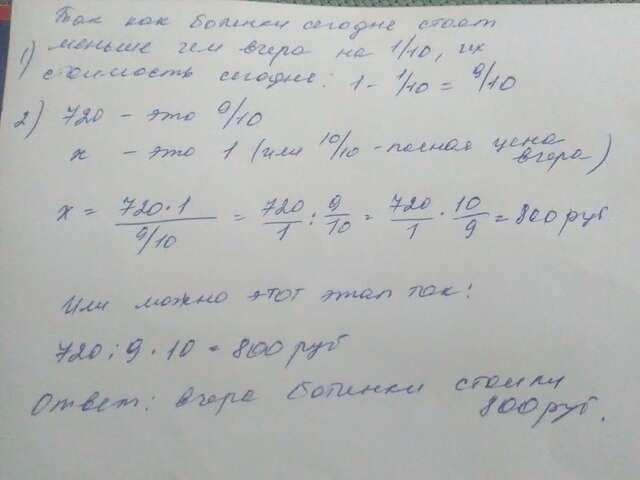 Так как ботинки сегодня стоят
1) меньше чем вчера на 1/10, их
стоимость сегодня: 1 - 1/10 = 9/10
2) 720 - это 9/10
x - это 1 (или 10/10 - полная цена вчера)
x = 720·1 / 9/10 = 720/1 : 9/10 = 720/1 · 10/9 = 800 руб.
Или можно этот этап так:
720 : 9 · 10 = 800 руб
Ответ: вчера ботинки стоили
800 руб.